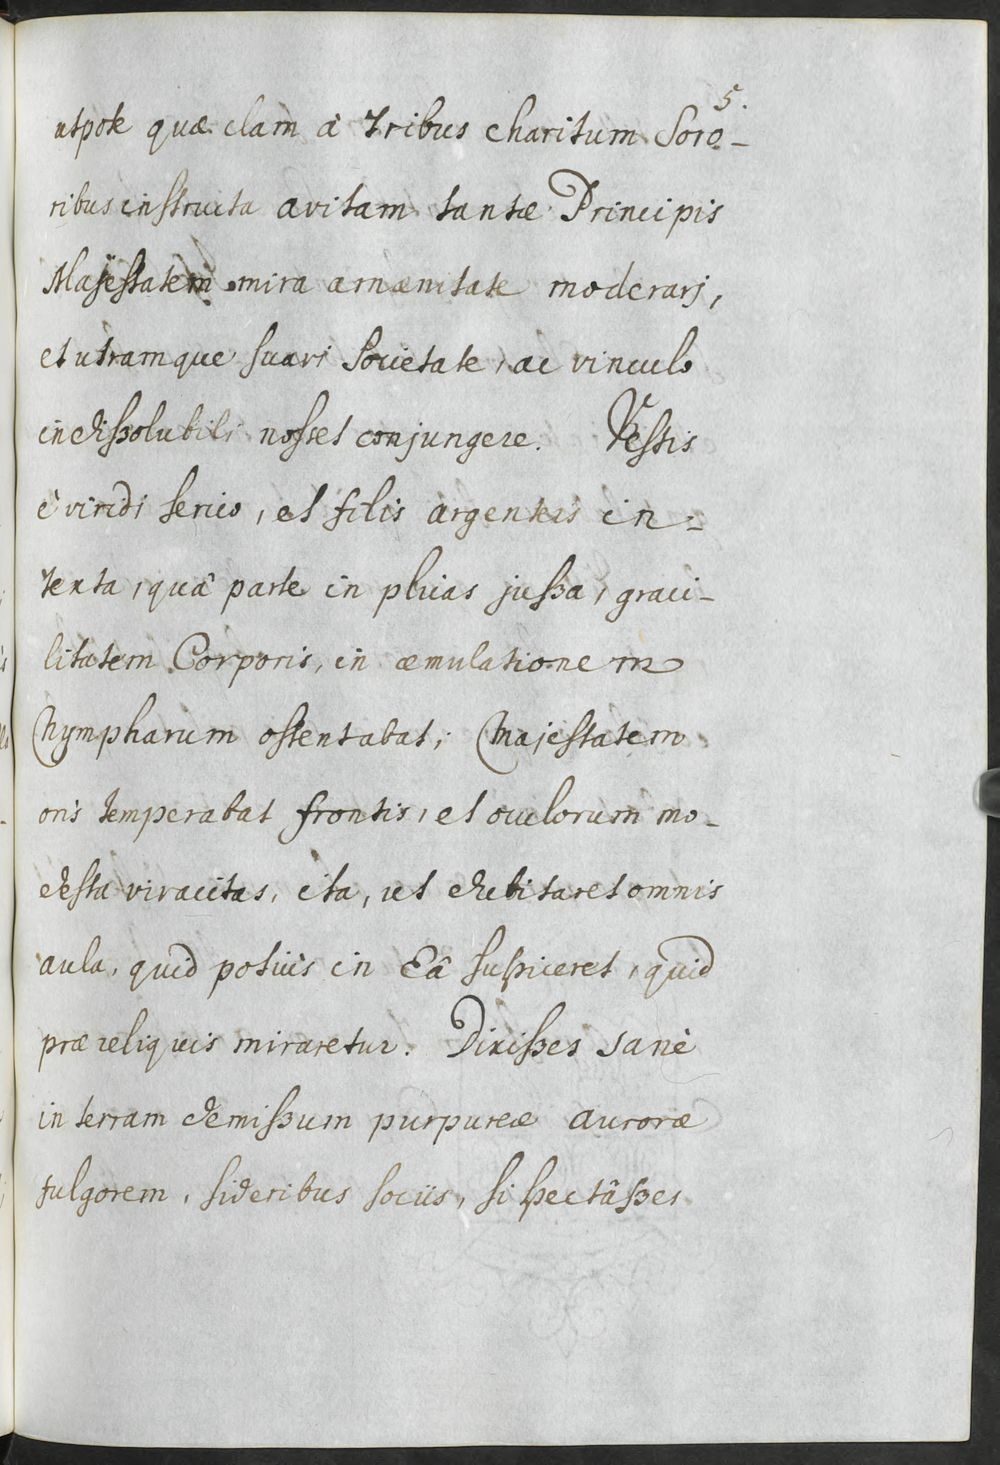 5.
utpote quæ clam à tribus charitum Soro-
ribus instructa avitam tantæ Principis
Majestatem mira amænitate moderarj,
et utramque suavi Societate, ac vinculo
indissolubili nosset conjungere. Vestis
è viridi serico, et filis argenteis in-
texta, quâ parte in plicas jussa, graci-
litatem Corporis, in æmulationem
Nympharum ostentabat; Majestatem
oris temperabat frontis, et oculorum mo-
desta vivacitas, ita, ut dubitaret omnis
aula, quid potiùs in Eâ suspiceret, quid
præ reliquis miraretur. Dixisses sanè
in terram demissum purpureæ auroræ
fulgorem, sideribus sociis, si spectâsses